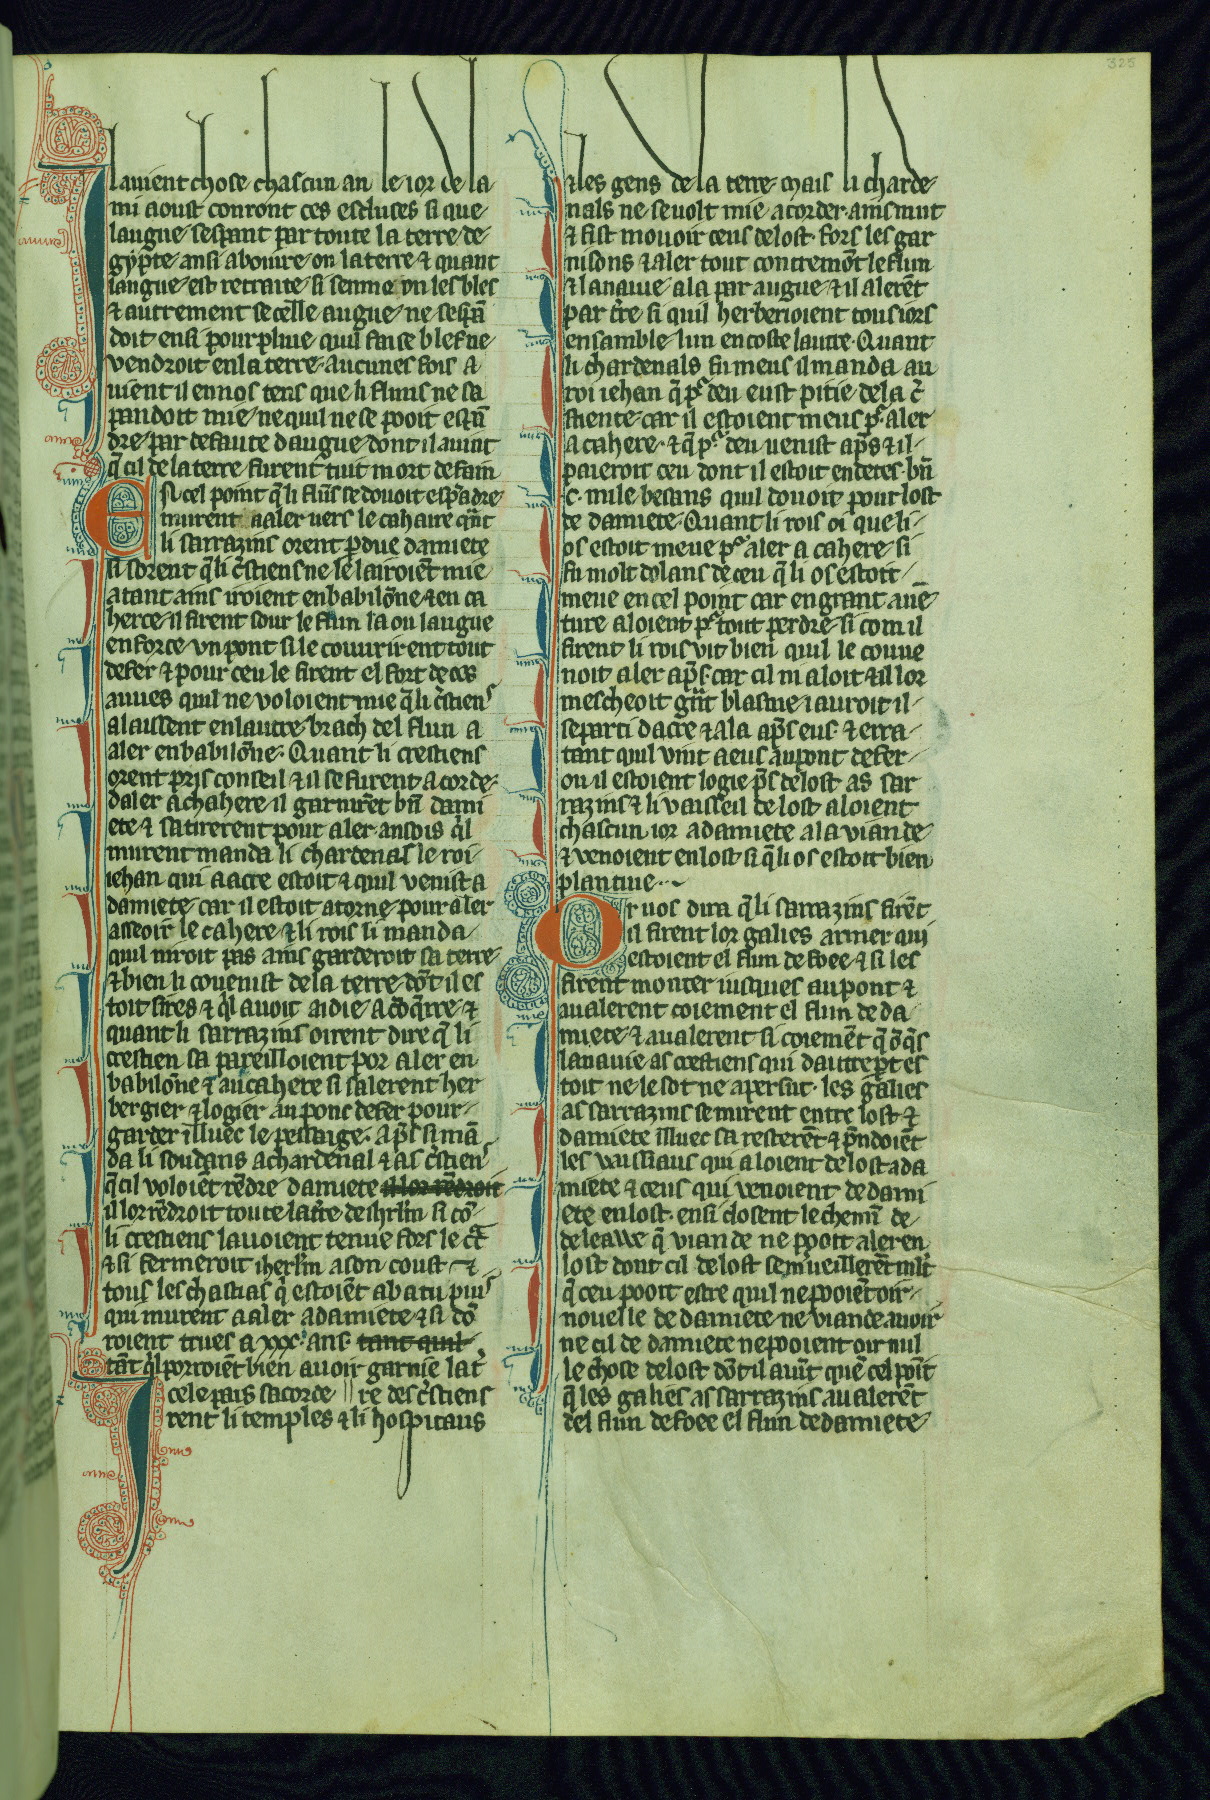 325
lauient chose chascun an le ior de la
mi aoust conront ces escluses si que
laugue sespant par toute la terre de
gypte ansi aboiure on la terre & quant
laugue est retraite si semme on les bles
& autrement se celle augue ne sespā
doit ensi pour pluie quil face blef ne
vendroit en la terre aucunes fois a
uient il en nos tens que li fluns ne sa
pandoit mie ne quil ne se pooit espā
dre par defaute daugue dont il auint
q̄ cil de la terre furent tuit mort de fain
E si cel point q̄ li flūs se douoit esp̄adre
murent a aler uers le cahaire q̄nt
li sarrazins orent p̄due damiete
si sorent q̄ li c̄stiens ne le lairoiēt mie
atant ains iroient en babilōne & en ca
herre il firent sour le flun la ou laugue
enforce vn pont si le couurirent tout
de fer & pour ceu le firent el fort de ces
auues quil ne voloient mie q̄ li c̄stiens
alaissent en lautre brach del flun a
aler en babilōne. Quant li crestiens
orent pris conseil & il se furent acorde
daler a chahere il garnirēt bn̄ dami
ete & satirerent pour aler ansois q̄l
murent manda li chardenas le roi
iehan qui a acre estoit & quil venist a
damiete car il estoit atorne pour aler
asseoir le cahere & li rois li manda
quil niroit pas ains garderoit sa terre
& bien li couenist de la terre dōt il es
toit sires & q̄l auoit aidie a cōq̄rre &
quant li sarrazins oirent dire q̄ li
crestien sa pareilloient por aler en
babilōne & au cahere si salerent her
bergier & logier au ponc de fer pour
garder illuec le passaige. ap̄s si mā
da li soudans a chardenal & as c̄stiens
q̄ cil voloiēt rēdre damiete il lor rēdroit
il lor rēdroit toute la t̄re de ihrl̄m si cō
li crestiens lauoient tenue fors le c̄t
& si fermeroit iherl̄m a son coust &
tous les chastias q̄ estoiēt abatu puis
qui murent a aler a damiete & si dō
roient trues a xxx ans tant quil
tāt q̄l porroiēt bien auoir garnie la t̄r
cele pais sacorde || re des c̄stiens
rent li temples & li hospitaus
& les gens de la terre mais li charde
nals ne se uolt mie acorder ains mut
& fist mouoir ceus de lost fors les gar
nisons & aler tout contremōt le flun
& la nauue ala par augue & il alerēt
par t̄re si quil herberioient tous iors
ensamble lun en coste lautre. Quant
li chardenals fu meus il manda au
roi iehan q̄ p̄ deu eust pitie de la c̄
stiente car il estoient meus p̄ aler
a cahere & q̄ p̄ deu uenist ap̄s & il
paieroit ceu dont il estoit en detes bn̄
c mile besans quil douoit pour lost
de damiete. Quant li rois oi que li
os estoit meue p̄ aler a cahere si
fu molt dolans de ceu q̄ li os estoit
meue en cel point car en grant auē
ture aloient p̄ tout perdre si com il
firent li rois vit bien quil le couue
noit aler ap̄s. car cil ni aloit & il lor
mescheoit gn̄t blasme i auroit il
separti dacre & ala ap̄s eus & erra
tant quil vint a eus au pont de fer
ou il estoient logie p̄s de lost as sar
razins & li vaisseil de lost aloient
chascun ior a damiete a la viande
& venoient en lost si q̄ li os estoit bien
plantiue
Or uos dira q̄ li sarrazins firēt
il firent lor galies armer qui
estoient el flun de foee & si les
firent monter iusques au pont &
aualerent coiement el flun de da
miete & aualerent si coiemēt q̄ ōq̄s
la nauie as crestiens qui dautre p̄t es
toit ne le sot ne apersut les galies
as sarrazins se mirent entre lost &
damiete illuec sa resterēt & p̄ndoiēt
les vaissiaus qui aloient de lost a da
miete & ceus qui venoient de dami
ete en lost ensi closent le chemī de
de leawe q̄ viande ne pooit aler en
lost dont cil de lost semueillerēt ml̄t
q̄ ceu pooit estre quil ne pooiēt oir
nouelle de damiete ne viande auoir
ne cil de damiete ne pooient oir nul
le chose de lost dōt il auīt quē cel poīt
q̄ les galies as sarrazins aualerēt
del flun de foee el flun de damiete